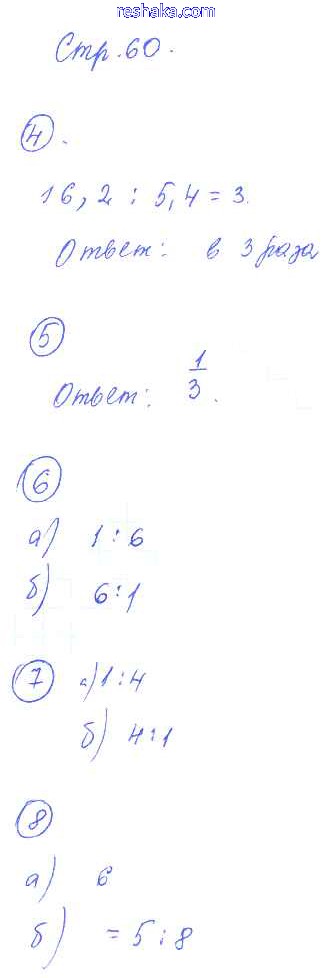 reshaka.com
Стр. 60.
4.
16,2 : 5,4 = 3.
Ответ: в 3 раза
5
Ответ: 1/3.
6
а) 1 : 6
б) 6 : 1
7 а) 1 : 4
б) 4 : 1
8
а) 6
б) = 5 : 8